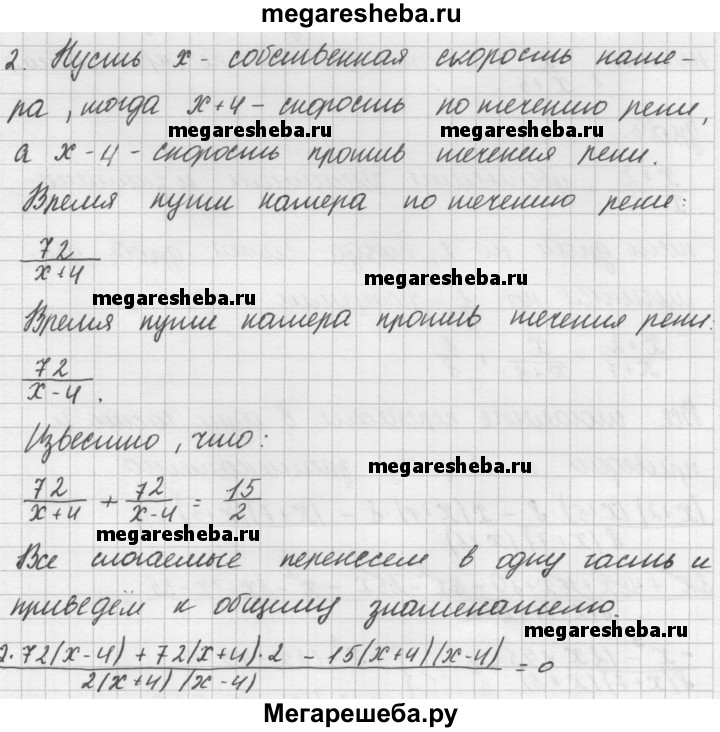 megaresheba.ru
2. Пусть x - собственная скорость кате-
ра, тогда x+4 - скорость по течению реки,
megaresheba.ru megaresheba.ru
а x-4 - скорость против течения реки.
Время пути катера по течению реки:
72/(x+4)
megaresheba.ru
megaresheba.ru
Время пути катера против течения реки:
72/(x-4).
Известно, что:
megaresheba.ru
72/(x+4) + 72/(x-4) = 15/2
megaresheba.ru
Все слагаемые перенесем в одну часть и
приведём к общему знаменателю.
megaresheba.ru
2·72(x-4) + 72(x+4)·2 - 15(x+4)(x-4) / 2(x+4)(x-4) = 0
Мегарешеба.ру